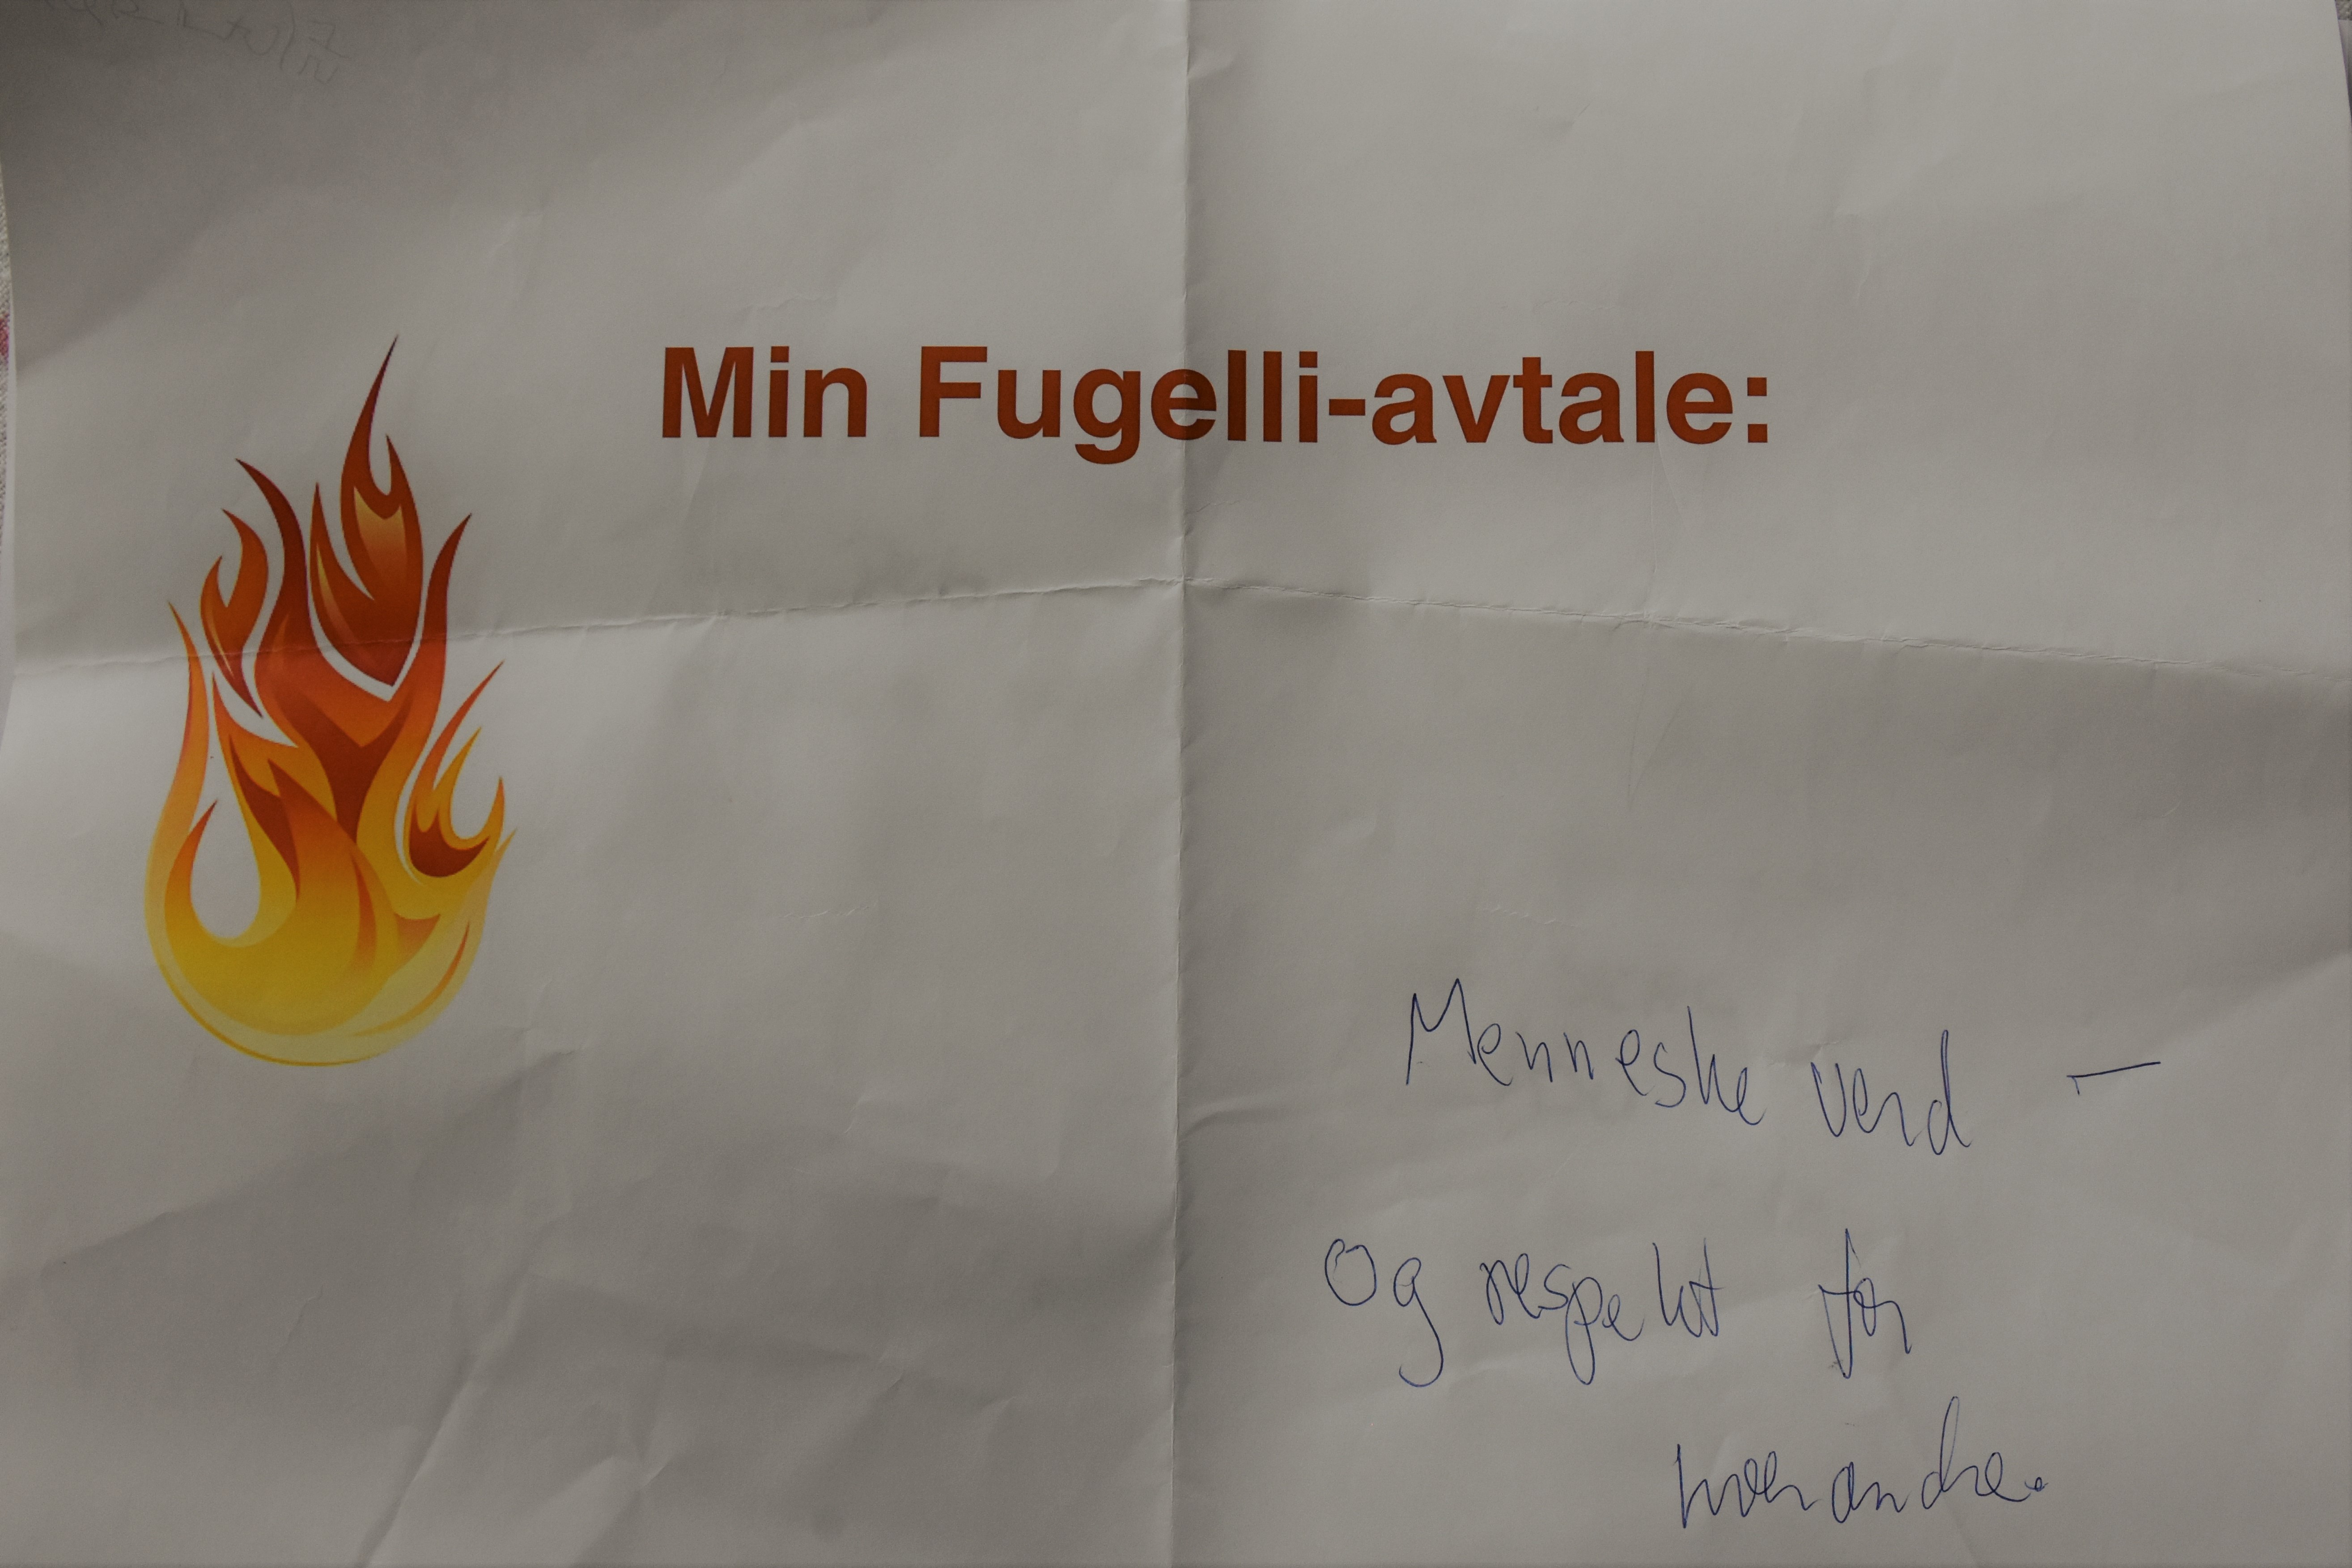 Min Fugelli-avtale:
Menneske verd –
og respekt for
hverandre.